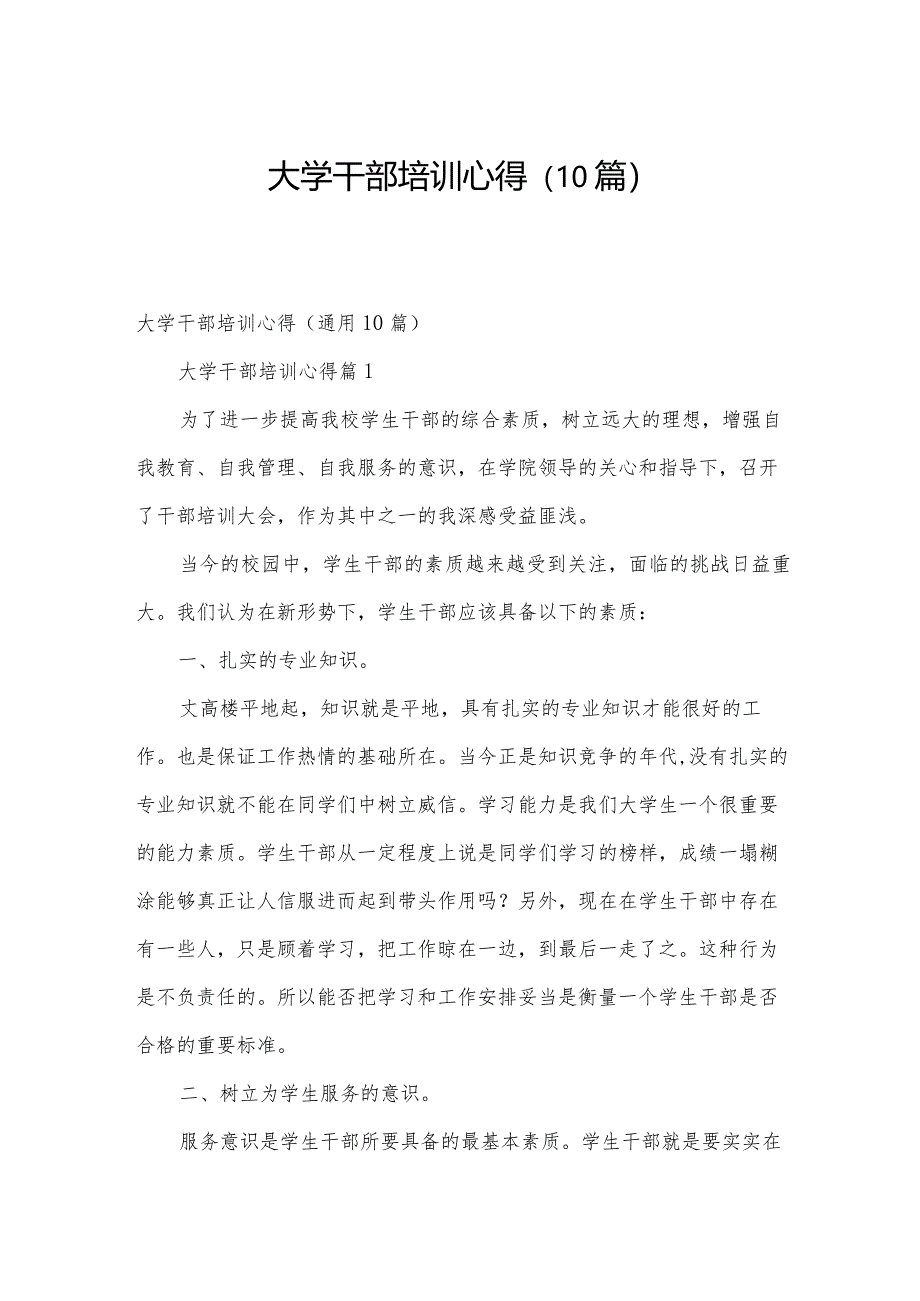 大学干部培训心得（10篇）
大学干部培训心得（通用10篇）
大学干部培训心得篇1
为了进一步提高我校学生干部的综合素质，树立远大的理想，增强自
我教育、自我管理、自我服务的意识，在学院领导的关心和指导下，召开
了干部培训大会，作为其中之一的我深感受益匪浅。
当今的校园中，学生干部的素质越来越受到关注，面临的挑战日益重
大。我们认为在新形势下，学生干部应该具备以下的素质：
一、扎实的专业知识。
丈高楼平地起，知识就是平地，具有扎实的专业知识才能很好的工
作。也是保证工作热情的基础所在。当今正是知识竞争的年代,没有扎实的
专业知识就不能在同学们中树立威信。学习能力是我们大学生一个很重要
的能力素质。学生干部从一定程度上说是同学们学习的榜样，成绩一塌糊
涂能够真正让人信服进而起到带头作用吗？另外，现在在学生干部中存在
有一些人，只是顾着学习，把工作晾在一边，到最后一走了之。这种行为
是不负责任的。所以能否把学习和工作安排妥当是衡量一个学生干部是否
合格的重要标准。
二、树立为学生服务的意识。
服务意识是学生干部所要具备的最基本素质。学生干部就是要实实在